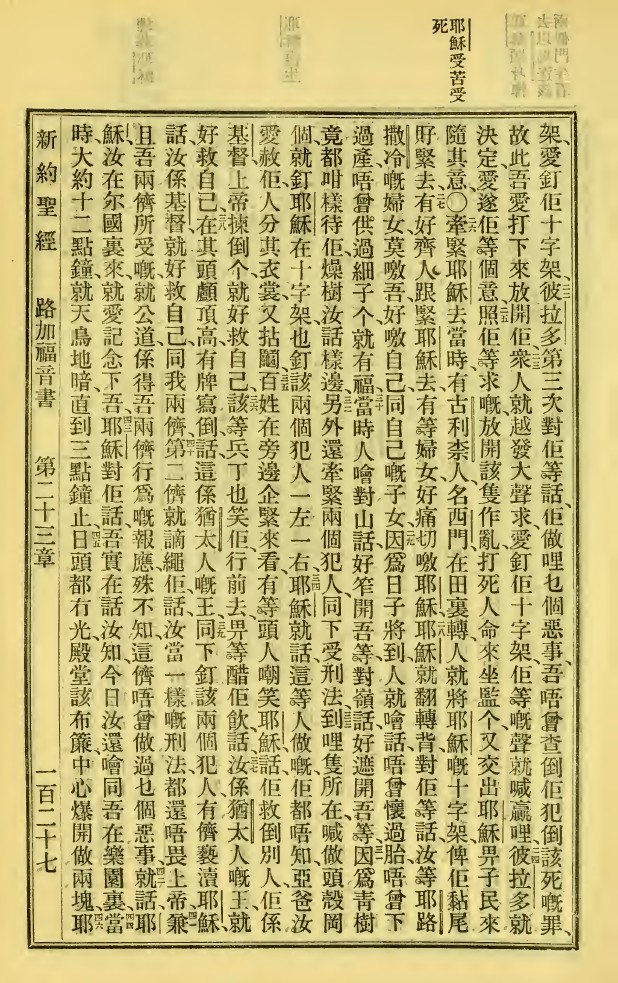 耶穌受苦受
死
架、愛釘佢十字架、彼拉多第三次對佢等話、佢做哩乜個惡事、吾唔曾查倒佢犯倒該死嘅罪、
故此吾愛打下來放開佢、衆人就越發大聲求、愛釘佢十字架、佢等嘅聲就喊贏哩、彼拉多就
決定愛遂佢等個意、照佢等求嘅、放開該隻作亂打死人命來坐監个、又交出耶穌畀子民來
隨其意、〇牽緊耶穌去當時、有古利柰人名西門、在田裏轉人、就將耶穌嘅十字架、俾佢黏尾
𢭃緊去、有好齊人跟緊耶穌去、有等婦女、好痛切噭耶穌、耶穌就翻轉背對佢等話、汝等耶路
撒冷嘅婦女、莫噭吾、好噭自己、同自己嘅子女、因爲日子將到、人就噲話、唔曾懷過胎、唔曾下
過產、唔曾供過細子个、就有福、當時人噲對山話、好笮開吾等、對嶺話、好遮開吾等、因爲青樹
竟都咁樣待佢、燥樹汝話樣邊、另外還牽緊兩個犯人、同下受刑法、到哩隻所在、喊做頭殼岡
個、就釘耶穌在十字架、也釘該兩個犯人、一左一右、耶穌就話、這等人做嘅、佢都唔知、亞爸汝
愛赦佢、人分其衣裳、又拈鬮、百姓在旁邊企緊來看、有等頭人嘲笑耶穌話、佢救倒別人、佢係
基督、上帝揀倒个、就好救自己、該等兵丁也笑佢、行前去、畀等醋佢飲、話、汝係猶太人嘅王、就
好救自己、在其頭顱頂高、有牌寫倒話、這係猶太人嘅王、同下釘該兩個犯人、有儕褻瀆耶穌、
話、汝係基督、就好救自己、同我兩儕、第二儕就讁繩佢話、汝當一樣嘅刑法、都還唔畏上帝、兼
且吾兩儕所受嘅、就公道、係得吾兩儕行爲嘅報應、殊不知這儕唔曾做過乜個惡事、就話、耶
穌、汝在尔國裏來、就愛記念下吾、耶穌對佢話、吾實在話汝知、今日汝還噲同吾在樂園裏、當
時大約十二點鐘、就天烏地暗、直到三點鐘止、日頭都冇光、殿堂該布簾、中心爆開做兩塊、耶
新約聖經　路加福音書　第二十三章　一百二十七